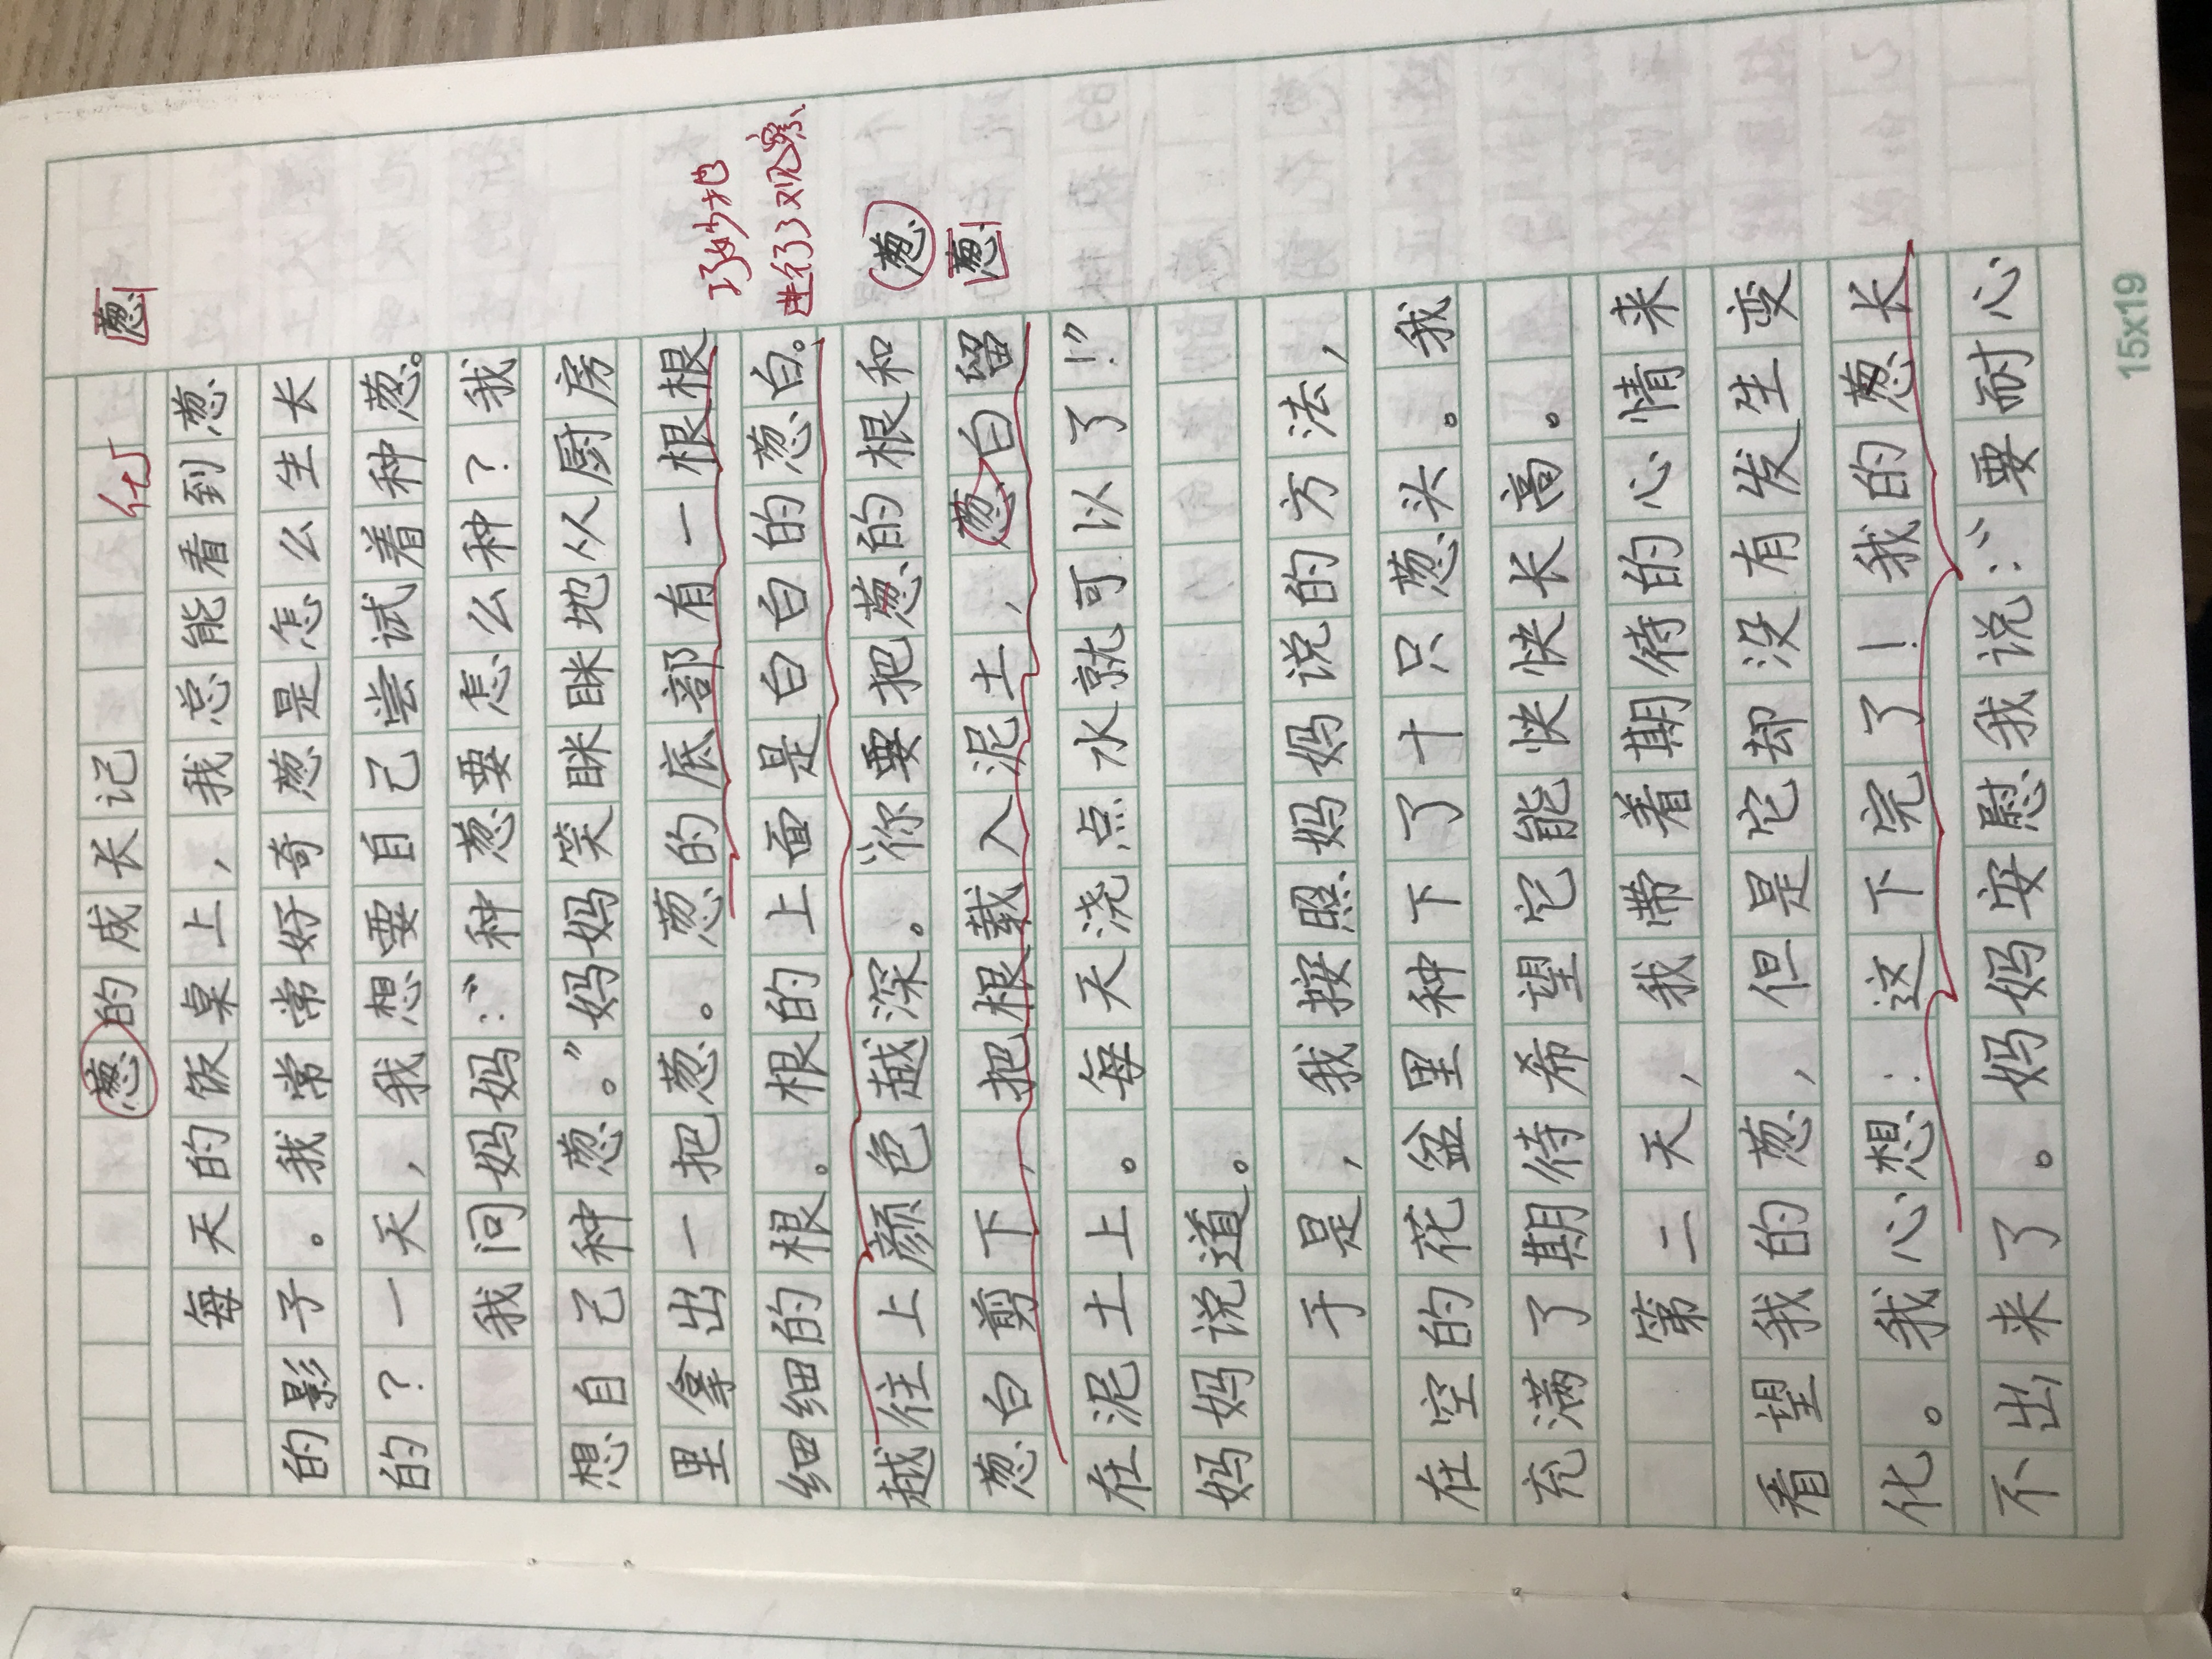 葱的成长记
优
葱
每天的饭桌上，我总能看到葱
的影子。我常常好奇葱是怎么生长
的？一天，我想要自己尝试着种葱。
我问妈妈：“种葱要怎么种？我
想自己种葱。”妈妈笑眯眯地从厨房
里拿出一把葱。葱的底部有一根根
细细的根。根的上面是白白的葱白。
巧妙地
进行了观察
越往上颜色越深。“你要把葱的根和
葱
葱白剪下，把根载入泥土，葱白留
葱
在泥土上。每天浇点水就可以了！”
妈妈说道。
于是，我按照妈妈说的方法，
在空的花盆里种下了十只葱头。我
充满了期待希望它能快快长高。
第二天，我带着期待的心情来
看望我的葱，但是它却没有发生变
化。我心想：这下完了！我的葱长
不出来了。妈妈安慰我说：“要耐心
15x19